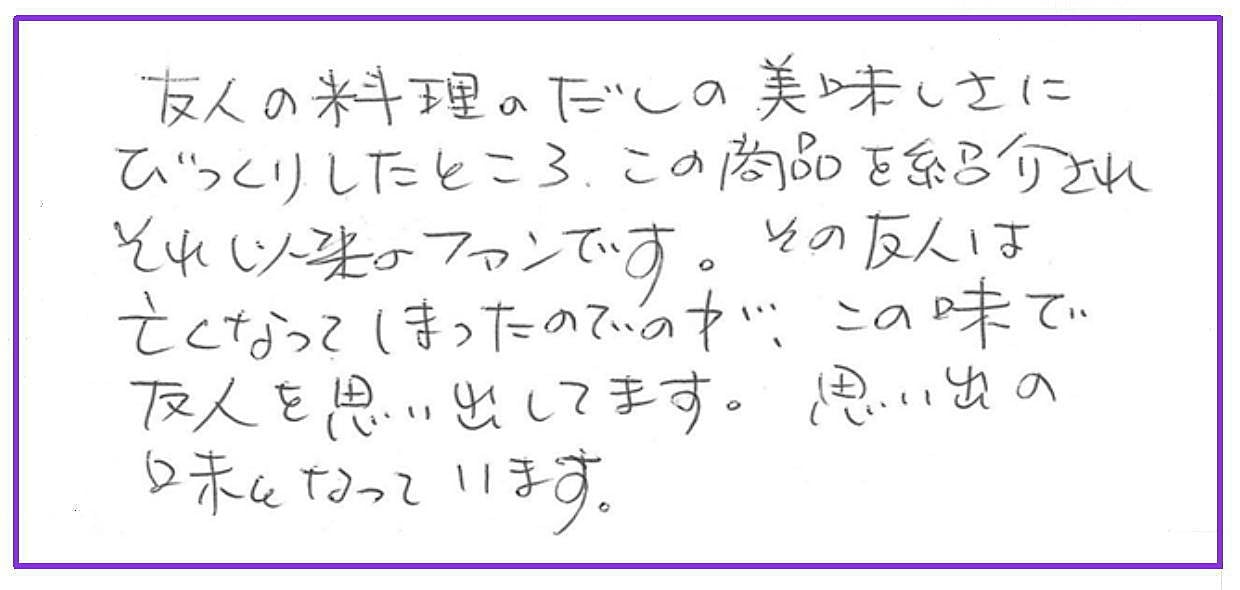 友人の料理のだしの美味しさに
びっくりしたところ、この商品を紹介され
それ以来のファンです。その友人は
亡くなってしまったのでのすが、この味で
友人を思い出してます。思い出の
味になっています。